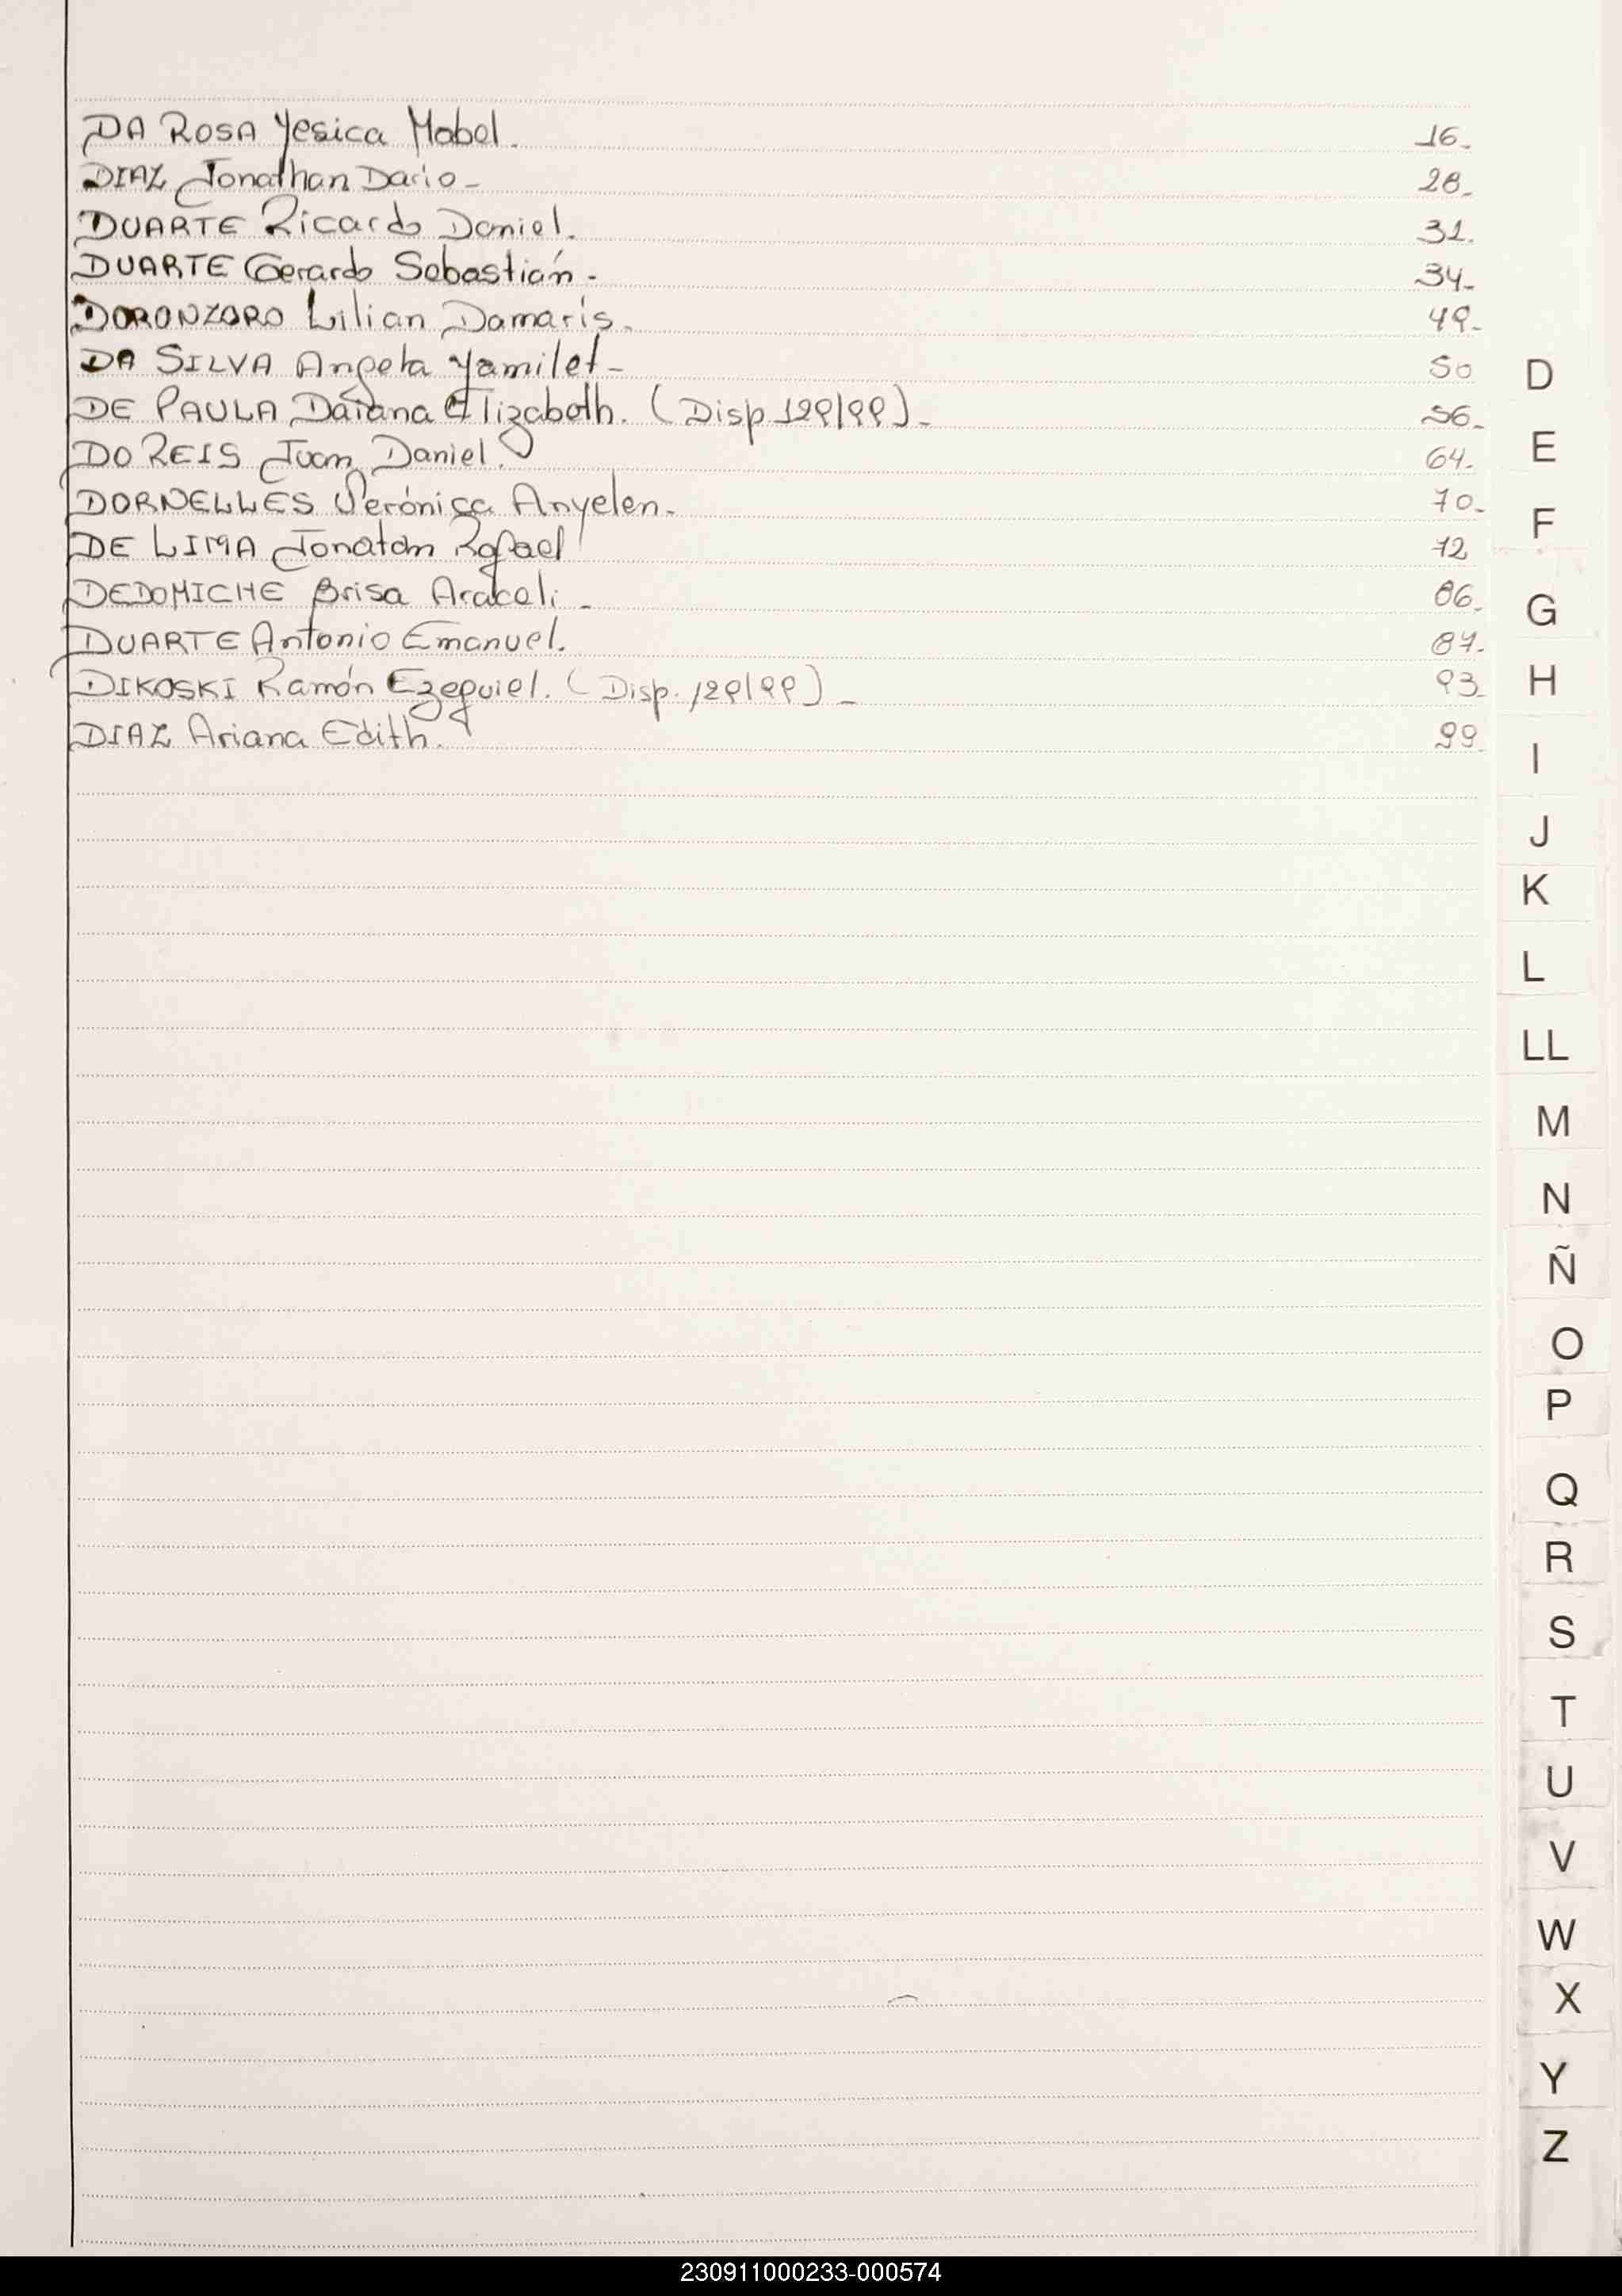 DA ROSA Yesica Mabel. 16.
DIAZ Jonathan Dario- 28.
DUARTE Ricardo Daniel. 31.
DUARTE Gerardo Sebastián- 34.
DORONZORO Lilian Damaris. 49.
DA SILVA Angela Yamilet- 50
DE PAULA Daiana Elizabeth. (Disp. 129/99)- 56.
DO REIS Juan Daniel. 64.
DORNELLES Verónica Anyelen. 70.
DE LIMA Jonatan Rafael 72
DEDOMICHE Brisa Araceli- 86.
DUARTE Antonio Emanuel. 87.
DIKOSKI Ramón Ezequiel. (Disp. 129/99)- 93.
DIAZ Ariana Edith. 99.
D
E
F
G
H
I
J
K
L
LL
M
N
Ñ
O
P
Q
R
S
T
U
V
W
X
Y
Z
230911000233-000574